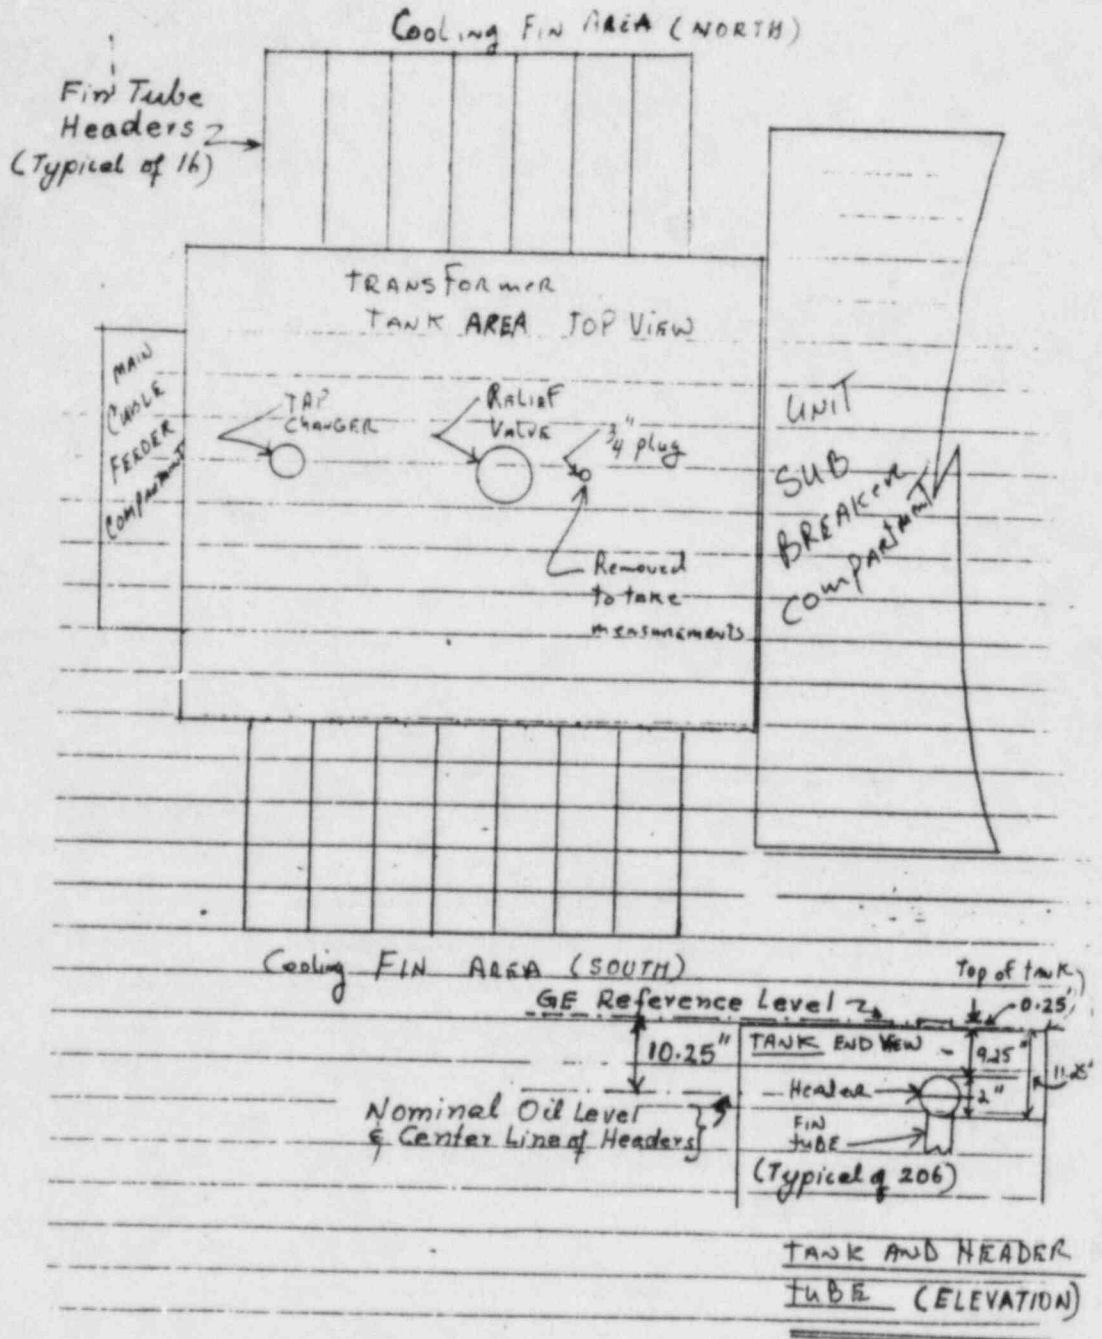 Cooling FIN AREA (NORTH)
Fin Tube
Headers
(Typical of 16)
TRANSFORMER
TANK AREA TOP VIEW
MAIN
CABLE
FEEDER
COMPARTMENT
TAP
CHANGER
RALIEF
VALVE
3/4" plug
Removed
to take
measurements
UNIT
SUB
BREAKER
COMPARTMENT
Cooling FIN AREA (SOUTH)
Top of tank
GE Reference Level
0.25"
10.25"
TANK END VIEW
9.25"
11.25"
Header
2"
Nominal Oil Level
& Center Line of Headers
FIN
TUBE
(Typical of 206)
TANK AND HEADER
TUBE (ELEVATION)